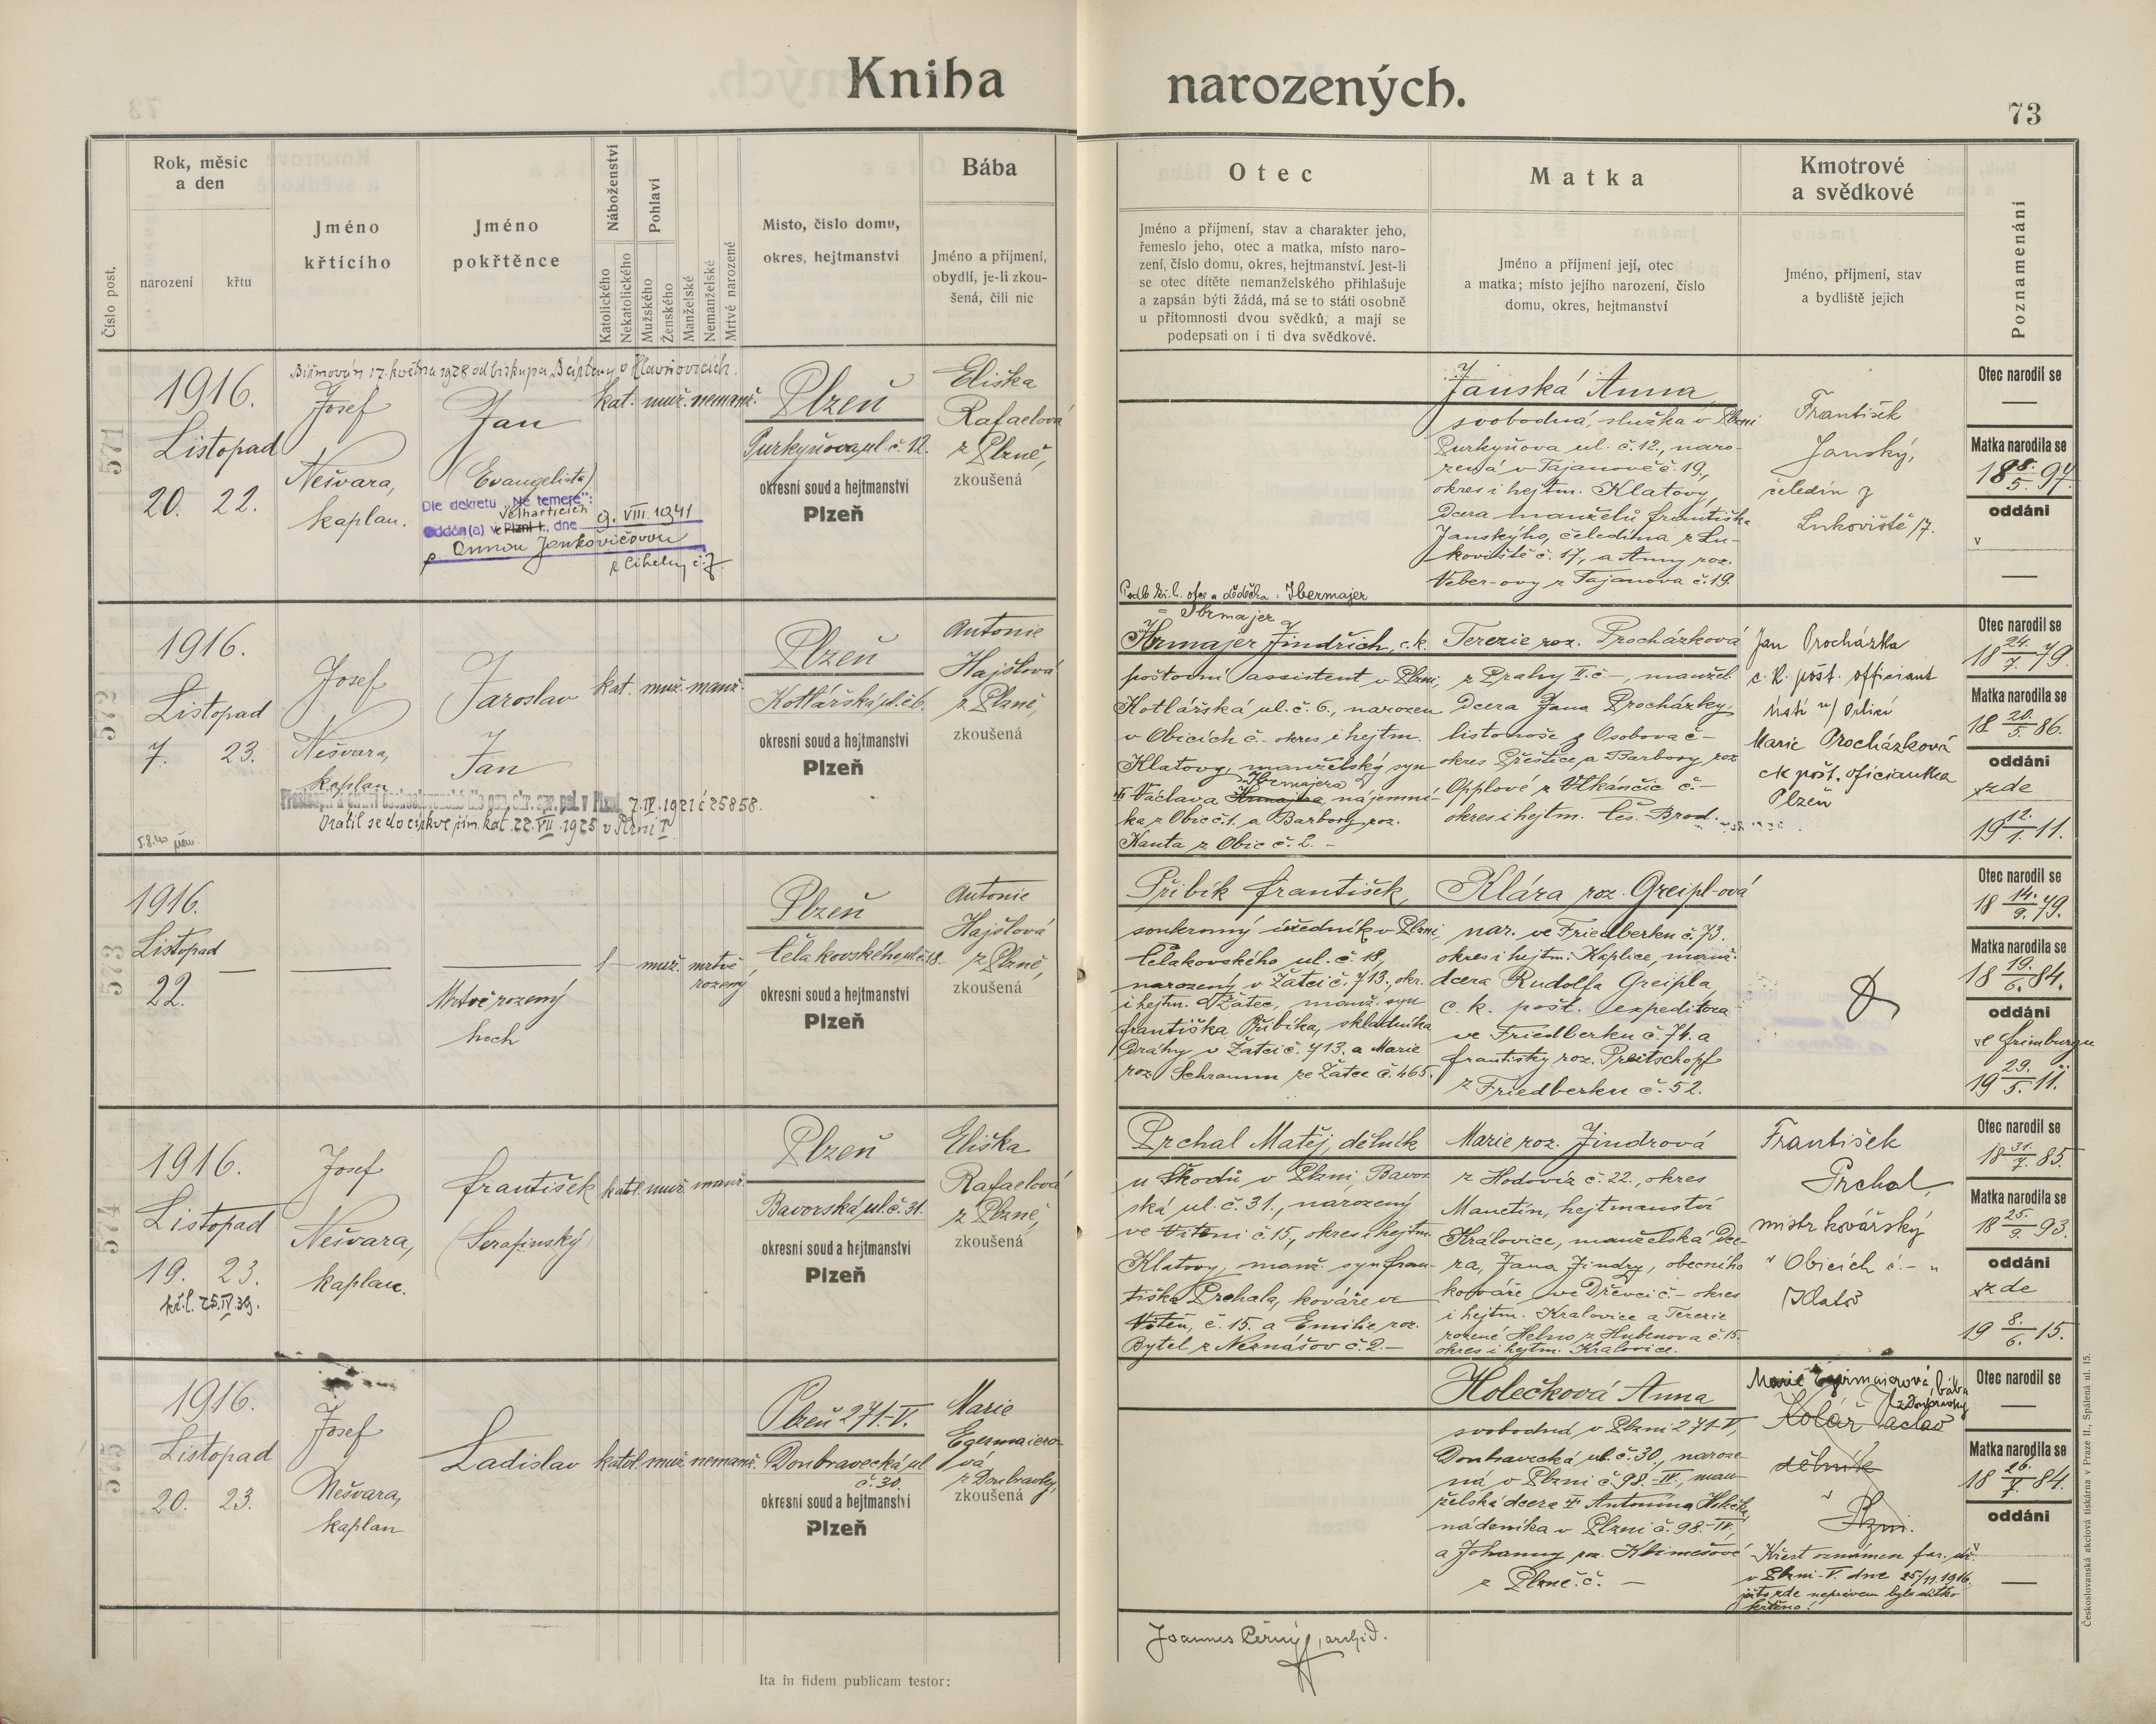 Kniha narozených.
73
Číslo post.
Rok, měsíc
a den
narození
křtu
Jméno
křtícího
Jméno
pokřtěnce
Náboženství
Katolického
Nekatolického
Pohlaví
Mužského
Ženského
Manželské
Nemanželské
Mrtvě narozené
Místo, číslo domu,
okres, hejtmanství
Bába
Jméno a příjmení,
obydlí, je-li zkou-
šená, čili nic
Otec
Jméno a příjmení, stav a charakter jeho,
řemeslo jeho, otec a matka, místo naro-
zení, číslo domu, okres, hejtmanství. Jest-li
se otec dítěte nemanželského přihlašuje
a zapsán býti žádá, má se to státi osobně
u přítomnosti dvou svědků, a mají se
podepsati on i ti dva svědkové.
Matka
Jméno a příjmení její, otec
a matka; místo jejího narození, číslo
domu, okres, hejtmanství
Kmotrové
a svědkové
Jméno, příjmení, stav
a bydliště jejich
Poznamenání
571
Biřmován 17. května 1928 od biskupa v Hlavňovicích.
1916.
Listopad
20. 22.
Josef
Nešvara,
kaplan.
Jan
(Evangelista)
Dle dekretu „Ne temere":
Velharticích
oddán(a) v Plzni I., dne 9. VIII. 1941
s Annou Jankovičovou
z Cihelny č. 7.
kat. muž. nemanž.
Plzeň
Purkyňova ul. č. 12.
okresní soud a hejtmanství
Plzeň
Eliška
Rafaelová
z Plzně,
zkoušená
Janská Anna
svobodná, služka v Plzni
Purkyňova ul. č. 12., naro-
zená v Tajanově č. 19.,
okres i hejtm. Klatovy,
dcera manželů Františka
Janskýho, čeledína z Lu-
koviště č. 17., a Anny roz.
Veber-ovy z Tajanova č. 19.
František
Janský,
čeledín z
Lukoviště 17.
Otec narodil se
—
Matka narodila se
18 28./5. 97.
oddáni
v
—
572
1916.
Listopad
7. 23.
Josef
Nešvara,
kaplan
Jaroslav
Jan
7. IV. 1921 č 25858.
Vrátil se do církve řím. kat. 22. VII. 1925 v Plzni I.
kat. muž. manž.
Plzeň
Kotlářská ul. č. 6.
okresní soud a hejtmanství
Plzeň
Antonie
Hajšlová
z Plzně,
zkoušená
Podle kř. l. otce a dědečka: Ibermajer
= Ibrmajer
Hrmajer Jindřich, c. k.
poštovní assistent v Plzni,
Kotlářská ul. č. 6., narozen
v Obicích č. – okres i hejtm.
Klatovy, manželský syn
Ibrmajera
† Václava Hrmajera, nájemní-
ka z Obic č. 1. a Barbory roz.
Kanta z Obic č. 2. –
Terezie roz. Procházková
z Prahy II. č –, manžel.
dcera Jana Procházky,
listonoše z Osobova č –
okres Přeštice, a Barbory roz.
Opplové z Vlkančic č. –
okres i hejtm. Čes. Brod.
Jan Procházka
c. k. pošt. officiant
Ústí n/ Orlicí
Marie Procházková
ck pošt. oficiantka
Plzeň
Otec narodil se
18 24./7. 79.
Matka narodila se
18 20./5. 86.
oddáni
zde
19 12./1. 11.
573
1916.
Listopad
22.
—
Mrtvě rozený
hoch
— muž. mrtvě
rozený
Plzeň
Čelakovského ul. č. 18.
okresní soud a hejtmanství
Plzeň
Antonie
Hajšlová
z Plzně,
zkoušená
Přibík František,
soukromý úředník v Plzni,
Čelakovského ul. č. 18,
narozený v Žatci č. 713., okr.
i hejtm. Žatec, manž. syn
Františka Přibíka, skladníka
dráhy v Žatci č. 713. a Marie
roz. Schramm ze Žatce č. 465.
Klára roz. Greipl-ová
nar. ve Friedberku č. 73.
okres i hejtm. Kaplice, manž.
dcera Rudolfa Greipla,
c. k. pošt. expeditora
ve Friedberku č. 76. a
Františky roz. Preitschopf
z Friedberku č. 52.
Otec narodil se
18 14./9. 79.
Matka narodila se
18 19./6. 84.
oddáni
ve Frimburgu
19 29./5. 11.
574
1916.
Listopad
19. 23.
kř. l. 25. IV. 39.
Josef
Nešvara,
kaplan.
František
(Serafinský)
katol. muž. manž.
Plzeň
Bavorská ul. č. 31.
okresní soud a hejtmanství
Plzeň
Eliška
Rafaelová
z Plzně,
zkoušená
Prchal Matěj, dělník
u Škodů v Plzni, Bavor-
ská ul. č. 31., narozený
ve Víteni č. 15., okres i hejtm.
Klatovy, manž. syn Fran-
tiška Prchala, kováře ve
Víteň, č. 15. a Emilie roz.
Bytel z Neznášov č. 2. –
Marie roz. Jindrová
z Hodovíz č. 22., okres
Manetín, hejtmanství
Královice, manželská dce-
ra, Jana Jindry, obecního
kováře ve Dřevci č. – okres
i hejtm. Kralovice a Terezie
rozené Helno z Hubenova č. 15.
okres i hejtm. Kralovice.
František
Prchal,
mistr kovářský
v Obicích č. – u
Klatov
Otec narodil se
18 31./7. 85.
Matka narodila se
18 25./9. 93.
oddáni
zde
19 8./6. 15.
575
1916.
Listopad
20. 23.
Josef
Nešvara,
kaplan
Ladislav
katol. muž. nemanž.
Plzeň 271.-V.
Doubravecká ul.
č. 30.
okresní soud a hejtmanství
Plzeň
Marie
Egermaiero-
vá
z Doubravky,
zkoušená
Holečková Anna
svobodná, v Plzni 271-V,
Doubravecká ul. č. 30., naroze-
ná v Plzni č. 98.-IV., man-
želská dcera † Antonína Holečka,
nádeníka v Plzni č. 98.-IV.
a Johanny roz. Klimešové
z Plzně č. —
Marie Egermaierová, bába
z Doubravky
Kolář Václav
dělník
v
Plzni.
Křest oznámen far. úř.
v Plzni-V. dne 25/11 1916,
ježto zde neprávem bylo dítko
křtěno!
Otec narodil se
—
Matka narodila se
18 26./7. 84.
oddáni
v
—
Joannes Černý, archid.
Ita in fidem publicam testor:
Československá akciová tiskárna v Praze II., Spálená ul. 15.